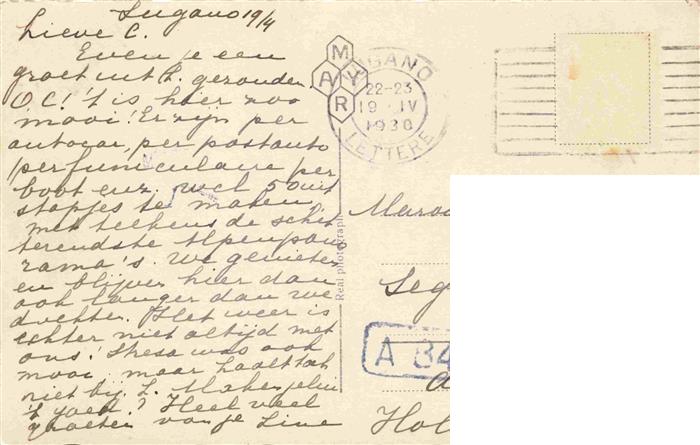 Lugano 19/4
Lieve C.
Even je een
groet uit L. gezonden.
O C! 't is hier zoo
mooi! Er zijn per
autocar, per postauto
per funiculaire per
boot enz. wel 50 uit
stapjes te maken,
met telkens de schit
terendste Alpenpano
rama's. We genieten
en blijven hier dan
ook langer dan we
dachten. Het weer is
echter niet altijd met
ons! Stresa was ook
mooi maar haalt toch
niet bij L. Maken jelui
't goed? Heel veel
groeten van je Line
MAYR
LUGANO
22-23
19·IV
1930
LETTERE
Real photograph
Seg
A 84
Hol